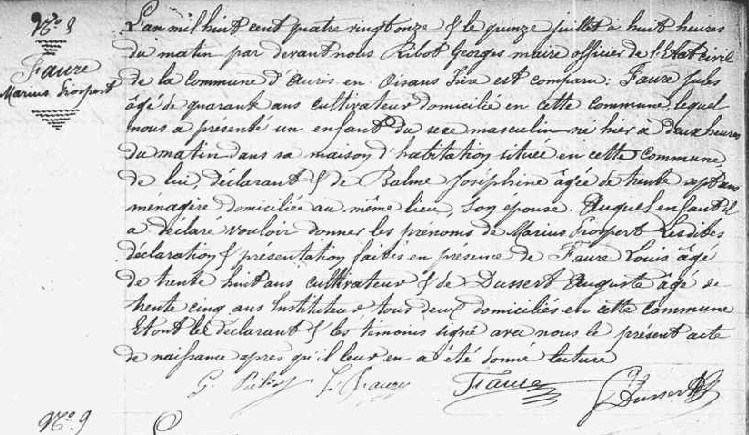 N°. 8
Faure
Marius Prosport
L'an mil huit cent quatre vingt onze & le quinze juillet à huit heures
du matin par devant nous Ribot Georges maire officier de l'Etat civil
de la Commune d'Auris en Oisans Isère est comparu: Faure Jules
âgé de quarante ans cultivateur domicilié en cette commune, lequel
nous a présenté un enfant du sexe masculin né hier à deux heures
du matin dans sa maison d'habitation située en cette commune,
de lui, déclarant & de Balme Joséphine âgée de trente sept ans
ménagère domiciliée au même lieu, son épouse. Auquel enfant il
a déclaré vouloir donner les prénoms de Marius Prosport Lesdites
déclaration & présentation faites en présence de Faure Louis âgé
de trente huit ans cultivateur & de Dussert Auguste âgé de
trente cinq ans Instituteur tous deux domiciliés en cette commune
Et ont le déclarant & les témoins signé avec nous le présent acte
de naissance après qu'il leur en a été donné lecture
L. Faure Faure Dussert
N°. 9